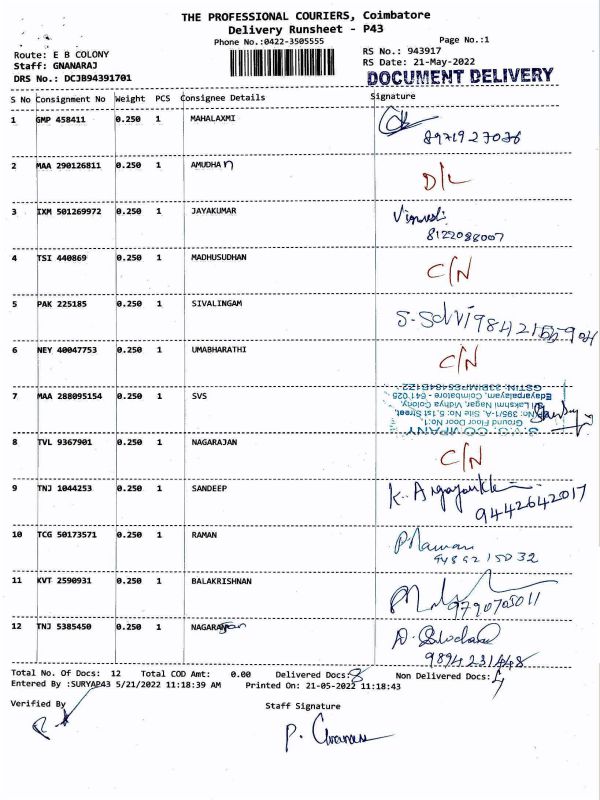 THE PROFESSIONAL COURIERS, Coimbatore
Delivery Runsheet - P43
Phone No.:0422-3505555 Page No.:1
Route: E B COLONY RS No.: 943917
Staff: GNANARAJ RS Date: 21-May-2022
DRS No.: DCJB94391701 DOCUMENT DELIVERY
S No Consignment No Weight PCS Consignee Details Signature
1 GMP 458411 0.250 1 MAHALAXMI
8971927036
2 MAA 290126811 0.250 1 AMUDHAN D/L
3 IXM 501269972 0.250 1 JAYAKUMAR
8122088007
4 TSI 440869 0.250 1 MADHUSUDHAN C/N
5 PAK 225185 0.250 1 SIVALINGAM S. Selvi
6 NEY 40047753 0.250 1 UMABHARATHI C/N
7 MAA 288095154 0.250 1 SVS
S.V.S. COMPANY
Ground Floor Door No:1
No: 395/1-A, Site No: 5, 1st Street,
Lakshmi Nagar, Vidhya Colony,
Edayarpalayam, Coimbatore - 641 025
8 TVL 9367901 0.250 1 NAGARAJAN C/N
9 TNJ 1044253 0.250 1 SANDEEP K.
9442642017
10 TCG 50173571 0.250 1 RAMAN Raman
11 KVT 2590931 0.250 1 BALAKRISHNAN
9790705011
12 TNJ 5385450 0.250 1 NAGARAJan
9894231448
Total No. Of Docs: 12 Total COD Amt: 0.00 Delivered Docs: 8 Non Delivered Docs: 4
Entered By :SURYAP43 5/21/2022 11:18:39 AM Printed On: 21-05-2022 11:18:43
Verified By Staff Signature